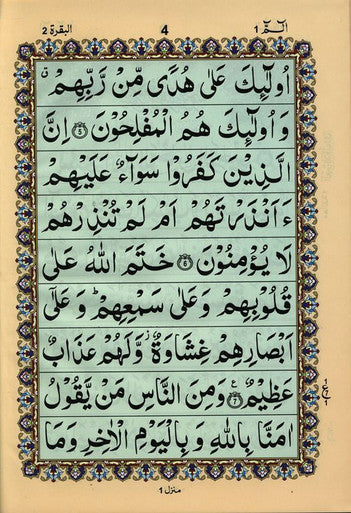 الٓمّٓ ١ 4 البقرة ٢
اُولٰٓئِكَ عَلٰى هُدًى مِّنْ رَّبِّهِمْ ۙ
وَ اُولٰٓئِكَ هُمُ الْمُفْلِحُوْنَ ﴿5﴾ اِنَّ
الَّذِيْنَ كَفَرُوْا سَوَآءٌ عَلَيْهِمْ
ءَاَنْذَرْتَهُمْ اَمْ لَمْ تُنْذِرْهُمْ
لَا يُؤْمِنُوْنَ ﴿6﴾ خَتَمَ اللّٰهُ عَلٰى
قُلُوْبِهِمْ وَعَلٰى سَمْعِهِمْ ؕ وَعَلٰٓى
اَبْصَارِهِمْ غِشَاوَةٌ ز وَّلَهُمْ عَذَابٌ
عَظِيْمٌ ﴿7﴾ ع وَمِنَ النَّاسِ مَنْ يَّقُوْلُ
اٰمَنَّا بِاللّٰهِ وَ بِالْيَوْمِ الْاٰخِرِ وَمَا
منزل ١